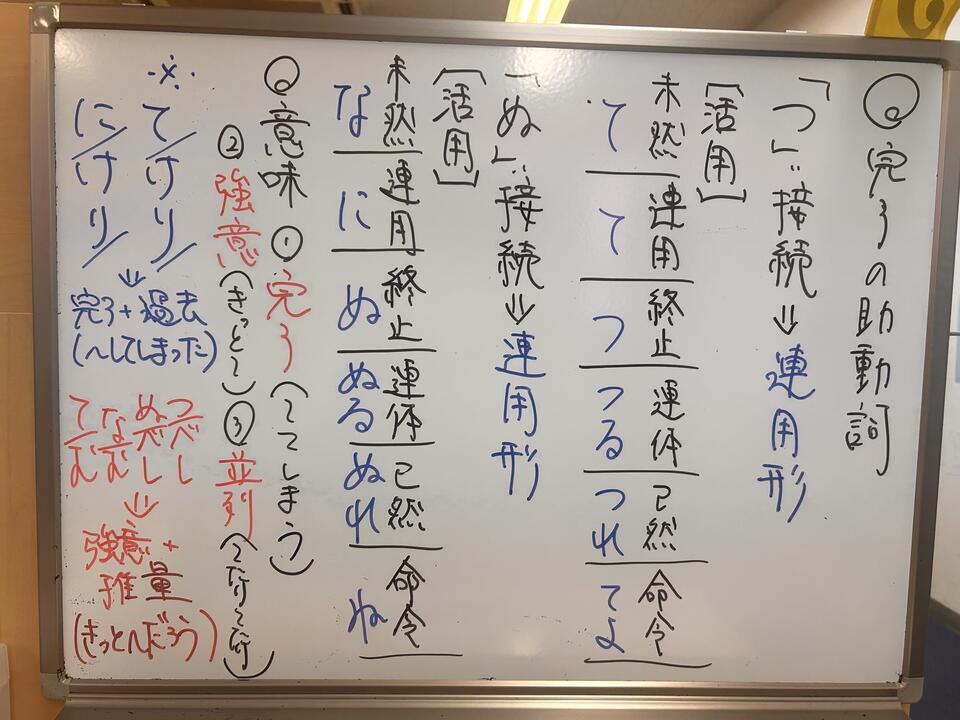 ◎完了の助動詞
「つ」:接続⇒連用形
[活用]
未然 連用 終止 連体 已然 命令
て て つ つる つれ てよ
「ぬ」:接続⇒連用形
[活用]
未然 連用 終止 連体 已然 命令
な に ぬ ぬる ぬれ ね
◎意味 ①完了(〜てしまう)
②強意(きっと〜)③並列(〜たり〜たり)
※
て/けり/
に/けり/
⇒完了+過去
(〜してしまった)
つべし
ぬべし
なむ
てむ
⇒強意+
推量
(きっと〜だろう)